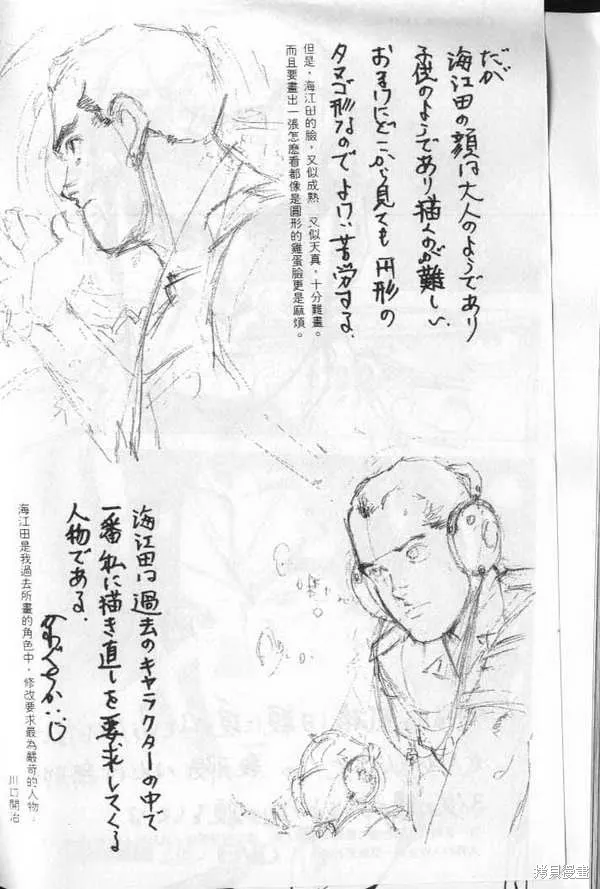 だが
海江田の顔は大人のようであり
子供のようであり描くのが難しい。
おまけにどこから見ても円形の
タマゴ形なのでよけい苦労する。
但是，海江田的臉，又似成熟，又似天真，十分難畫。
而且要畫出一張怎麼看都像是圓形的雞蛋臉更是麻煩。
海江田は過去のキャラクターの中で
一番私に描き直しを要求してくる
人物である。
海江田是我過去所畫的角色中，修改要求最為嚴苛的人物。
川口開治
拷貝漫畫